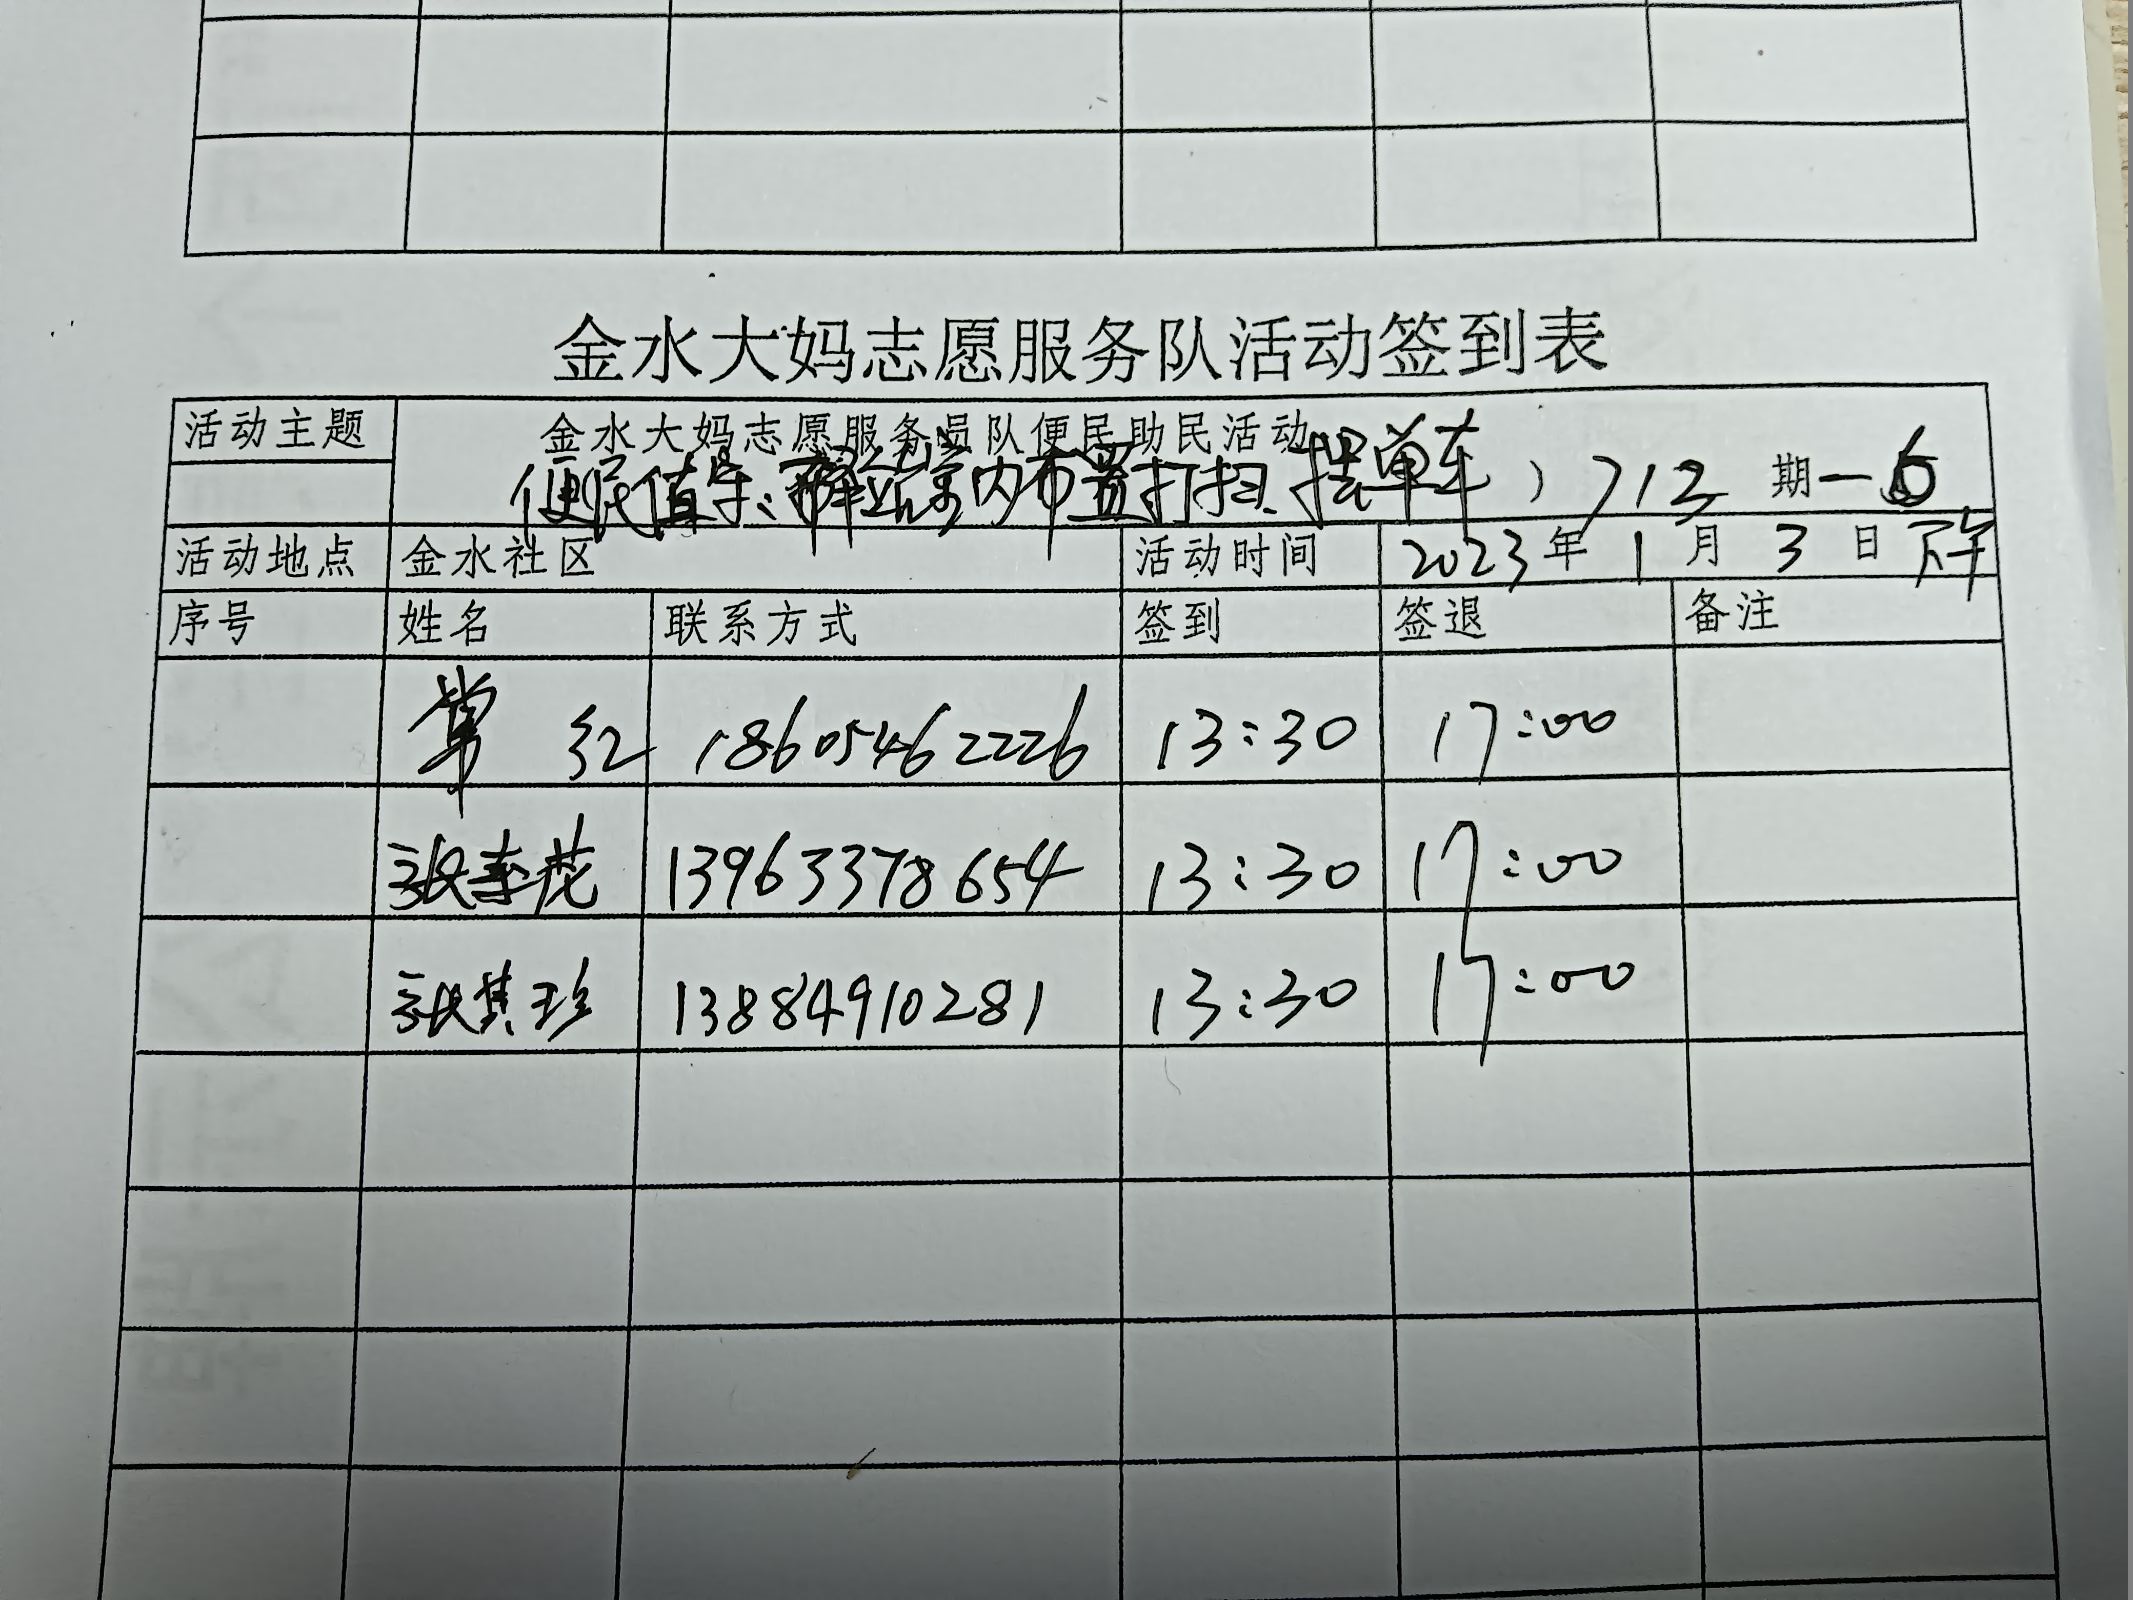 金水大妈志愿服务队活动签到表
活动主题 金水大妈志愿服务员队便民助民活动
便民值车、 内布置打扫、摆单车) 713 期一6
活动地点 金水社区 活动时间 2023年 1月 3日 下午
序号 姓名 联系方式 签到 签退 备注
红 18605462226 13:30 17:00
张春花 13963378654 13:30 17:00
张其珍 13884910281 13:30 17:00